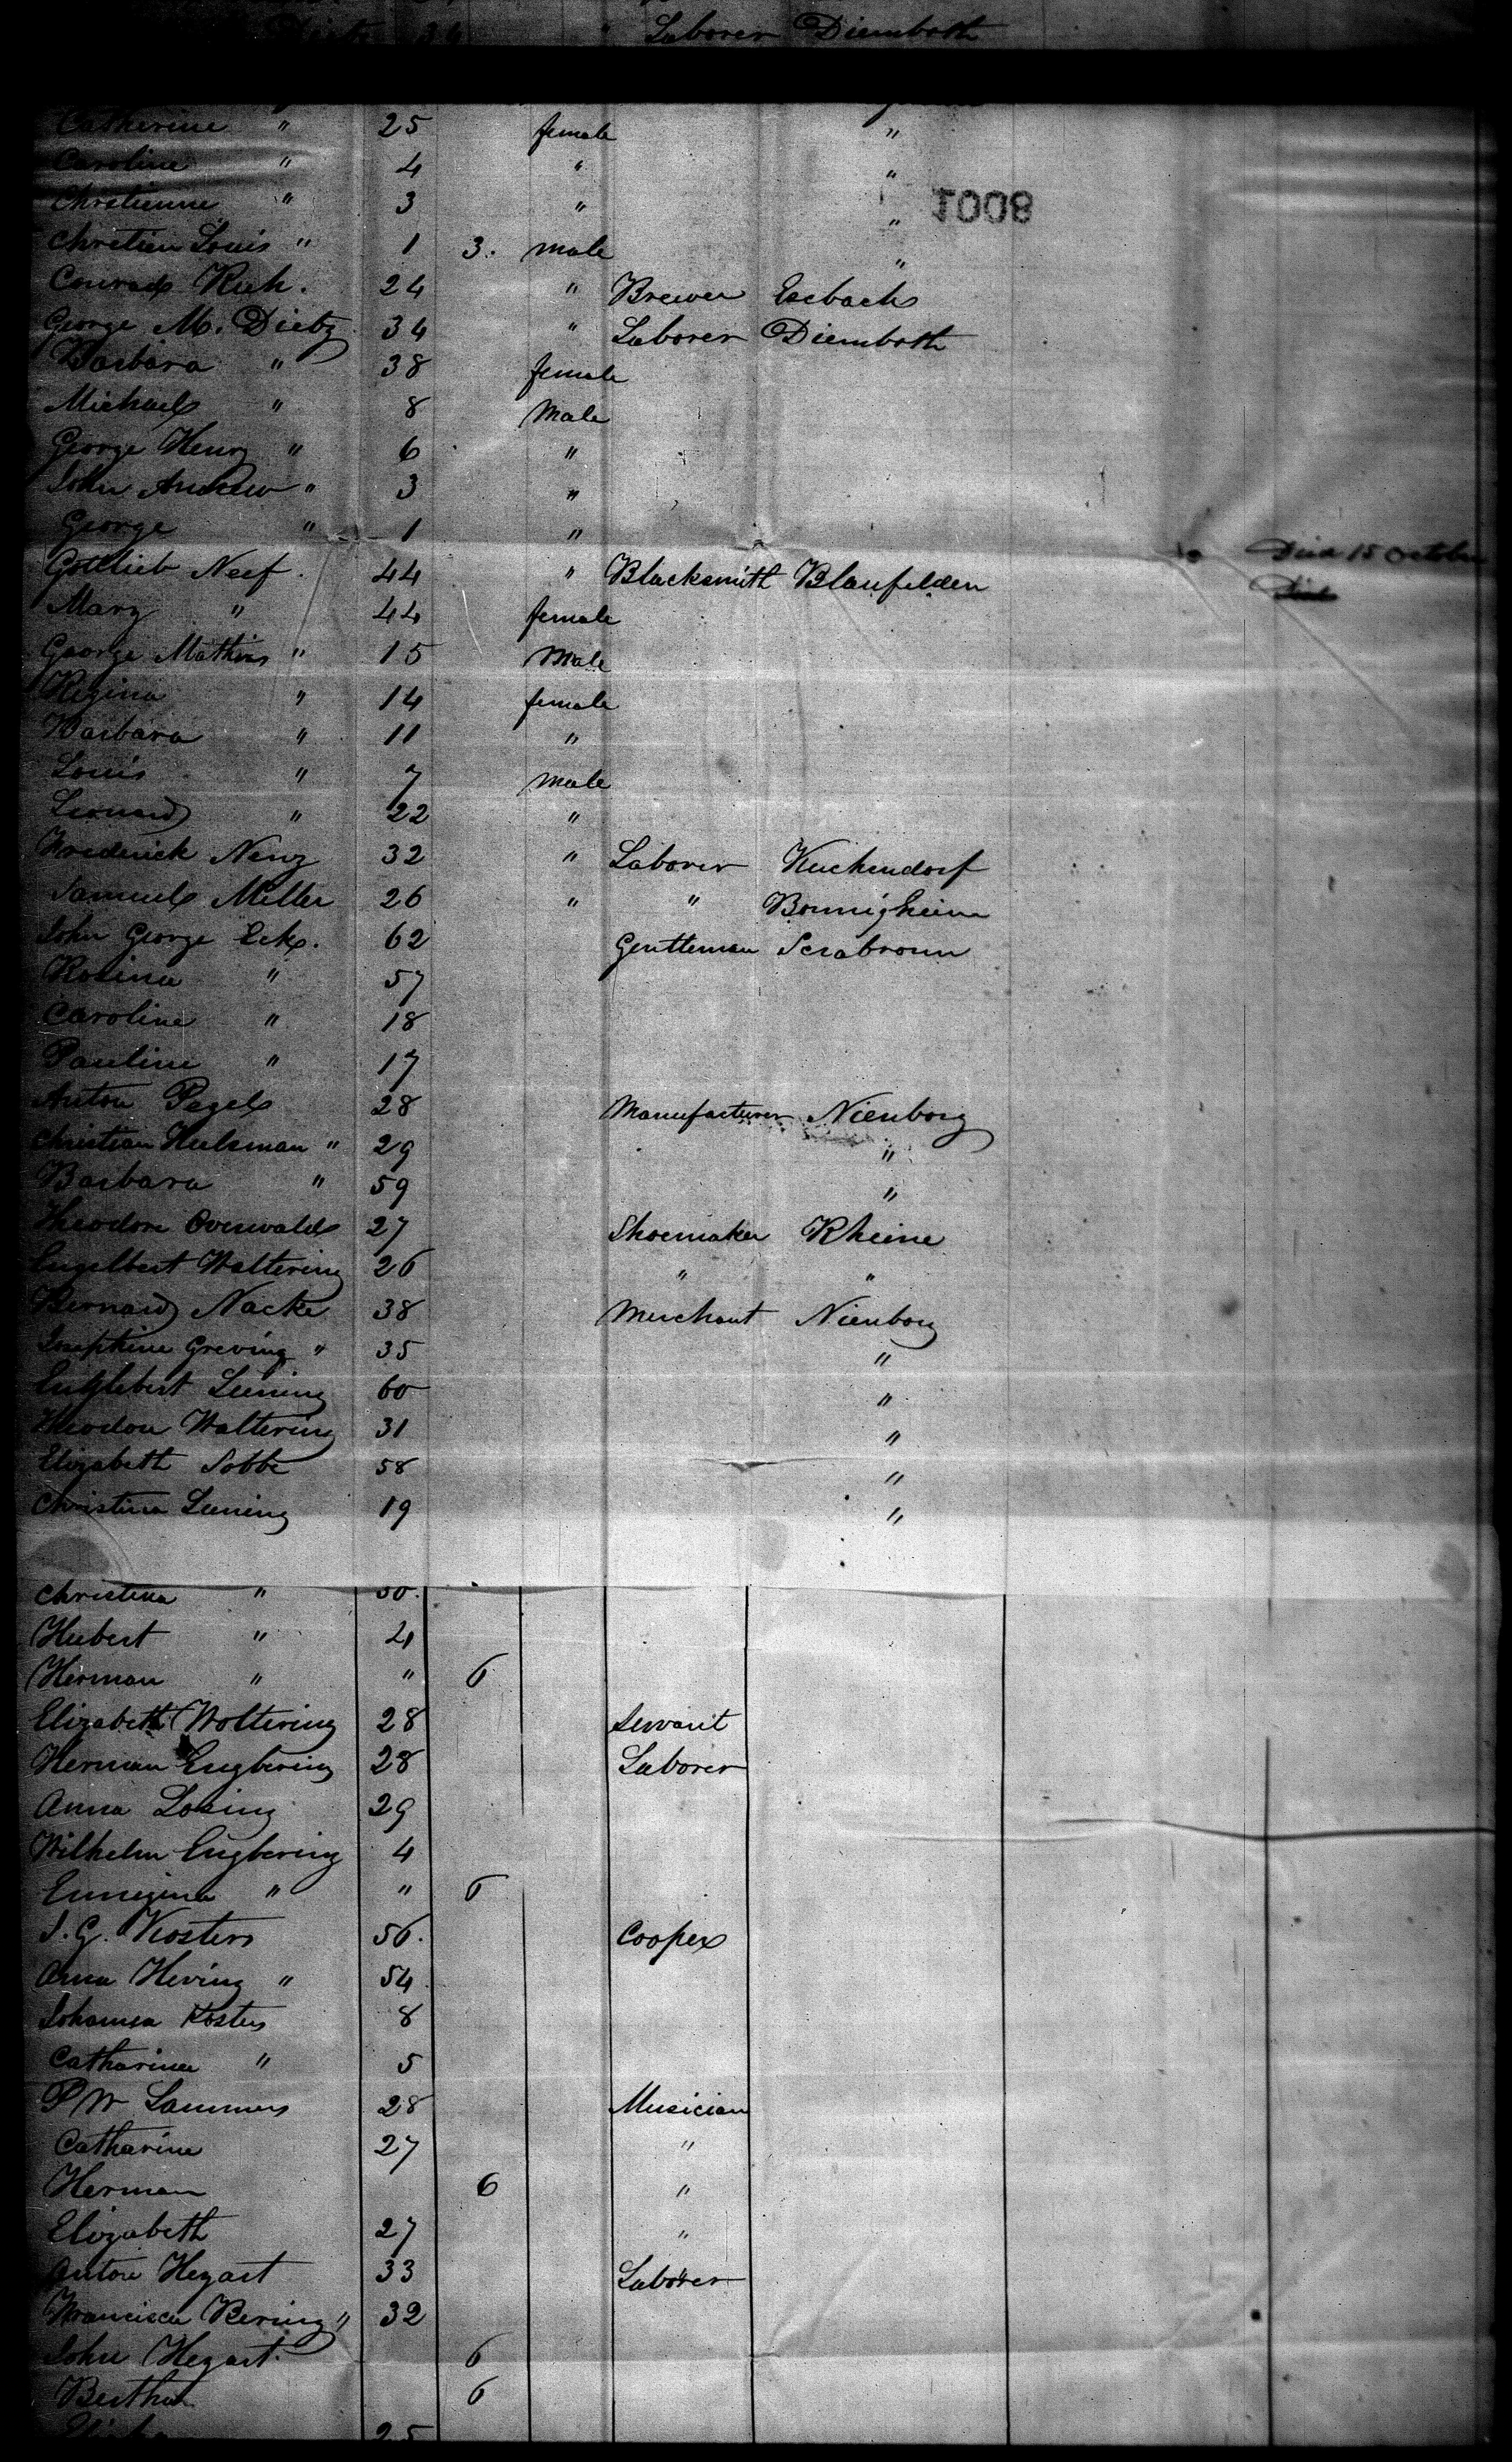 Laborer Diemboth
Catherine " 25 female "
Caroline " 4 " "
Chretienne " 3 " "
1008
Chretien Louis " 1 3. male "
Conrad Ruh. 24 " Brewer Esebach
George M. Dietz 34 " Laborer Diemboth
Barbara " 38 female
Michael " 8 Male
George Henry " 6 "
John Andrew " 3 "
George " 1 "
Died 15 October
Gottlieb Neef. 44 " Blacksmith Blaufelden
Mary " 44 female
George Mathias " 15 Male
Regina " 14 female
Barbara " 11 "
Louis " 7 male
Leonard " 22 "
Frederick Nenz 32 " Laborer Kuchendorf
Samuel Miller 26 " " Bonnigheim
John George Eck. 62 Gentleman Scrabronn
Rosina " 57
Caroline " 18
Pauline " 17
Anton Pegels 28 Manufacturer Nienborg
Christian Hulsman " 29 "
Barbara " 59 "
Theodore Overwald 27 Shoemaker Rheine
Engelbert Woltering 26 " "
Bernard Nacke 38 Merchant Nienborg
Josephine Greving " 35 "
Englebert Luning 60 "
Theodore Woltering 31 "
Elizabeth Sobbe 58 "
Christina Luning 19 "
Christina " 30.
Hubert " 4
Herman " " 6
Elizabeth Woltering 28 Servant
Herman Engbering 28 Laborer
Anna Losing 29
Wilhelm Engbering 4
" " 6
J. G. Kosters 56. Cooper
Anna Hering " 54
Johanna Kosters 8
Catharina " 5
P W Lammers 28 Musician
Catharine 27 "
Herman 6 "
Elizabeth 27 "
Anton Hegart 33 Laborer
Francisca Bering " 32
John Hegart. 6
Bertha 6
25